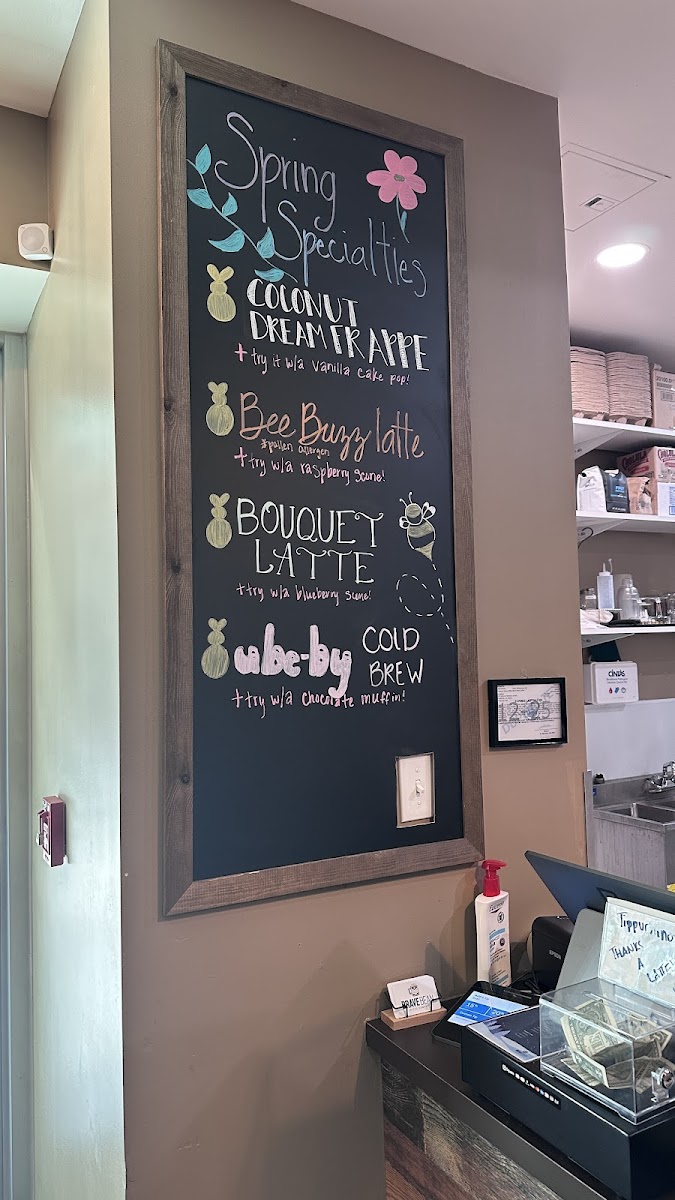 Spring
Specialties
COCONUT
DREAM FRAPPE
+ try it w/a vanilla cake pop!
Bee Buzz latte
*pollen allergen
+ try w/a raspberry scone!
BOUQUET
LATTE
+try w/a blueberry scone!
ube-by COLD
BREW
+try w/a chocolate muffin!
CINTAS
12-25
EPSON
Tippuccino
THANKS
A
LATTE!
BRAVE BEAN